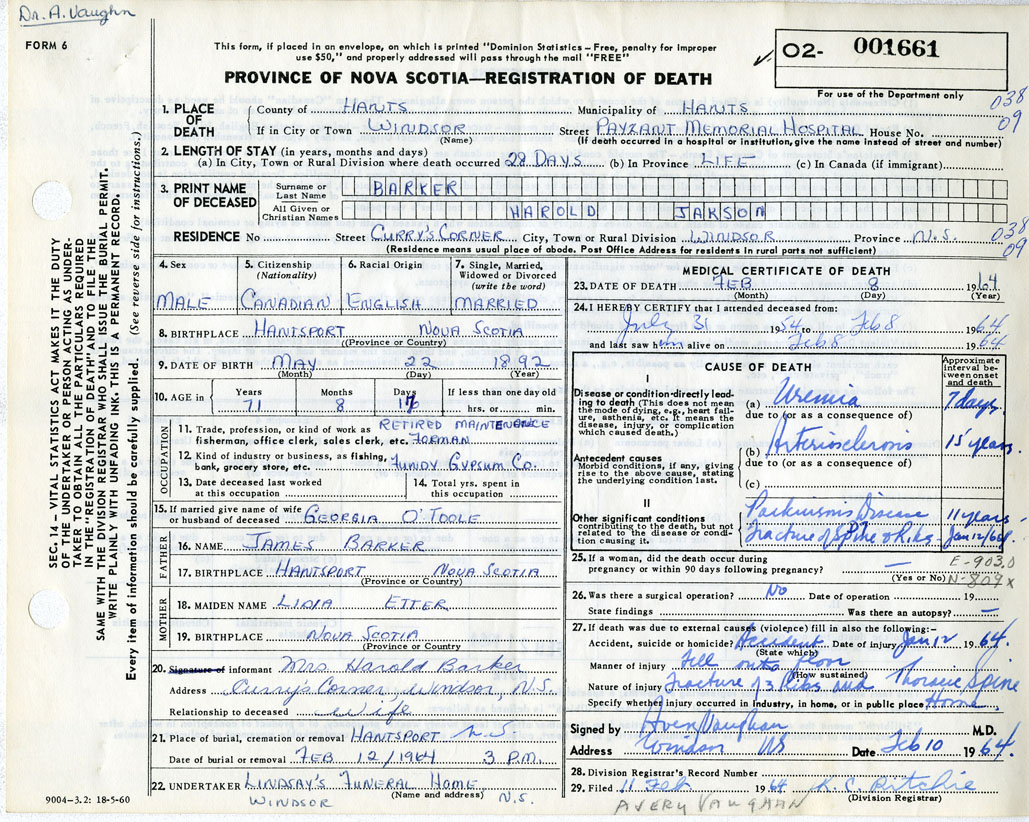 Dr. A. Vaughn
FORM 6
This form, if placed in an envelope, on which is printed "Dominion Statistics – Free, penalty for improper
use $50," and properly addressed will pass through the mail "FREE"
PROVINCE OF NOVA SCOTIA—REGISTRATION OF DEATH
✓ 02- 001661
For use of the Department only
038
09
1. PLACE OF DEATH County of HANTS Municipality of HANTS
If in City or Town WINDSOR (Name) Street PAYZANT MEMORIAL HOSPITAL House No.
(If death occurred in a hospital or institution, give the name instead of street and number)
2. LENGTH OF STAY (in years, months and days)
(a) In City, Town or Rural Division where death occurred 28 DAYS (b) In Province LIFE (c) In Canada (if immigrant)
3. PRINT NAME OF DECEASED
Surname or Last Name BARKER
All Given or Christian Names HAROLD JAKSON
RESIDENCE No Street CURRY'S CORNER City, Town or Rural Division WINDSOR Province N.S.
038
09
(Residence means usual place of abode. Post Office Address for residents in rural parts not sufficient)
4. Sex MALE
5. Citizenship (Nationality) CANADIAN
6. Racial Origin ENGLISH
7. Single, Married, Widowed or Divorced (write the word) MARRIED
8. BIRTHPLACE HANTSPORT NOVA SCOTIA
(Province or Country)
9. DATE OF BIRTH MAY 22 1892
(Month) (Day) (Year)
10. AGE in Years 71 Months 8 Days 17 If less than one day old hrs. or min.
OCCUPATION
11. Trade, profession or kind of work as fisherman, office clerk, sales clerk, etc. RETIRED MAINTENANCE FORMAN
12. Kind of industry or business, as fishing, bank, grocery store, etc. FUNDY GYPSUM CO.
13. Date deceased last worked at this occupation
14. Total yrs. spent in this occupation
15. If married give name of wife or husband of deceased GEORGIA O'TOOLE
FATHER
16. NAME JAMES BARKER
17. BIRTHPLACE HANTSPORT NOVA SCOTIA
(Province or Country)
MOTHER
18. MAIDEN NAME LIDIA ETTER
19. BIRTHPLACE NOVA SCOTIA
(Province or Country
20. Signature of informant Mrs. Harold Barker
Address Curry's Corner, Windsor, N.S.
Relationship to deceased wife
21. Place of burial, cremation or removal HANTSPORT N.S.
Date of burial or removal FEB 12/1964 3 P.M.
22. UNDERTAKER LINDSAY'S FUNERAL HOME
(Name and address)
WINDSOR N.S.
9004–3.2: 18-5-60
MEDICAL CERTIFICATE OF DEATH
23. DATE OF DEATH FEB 8 1964
(Month) (Day) (Year)
24. I HEREBY CERTIFY that I attended deceased from:
July 31 1954 to Feb 8 1964
and last saw him alive on Feb 8 1964
CAUSE OF DEATH
Approximate interval between onset and death
I
Disease or condition directly leading to death (This does not mean the mode of dying, e.g., heart failure, asthenia, etc. It means the disease, injury, or complication which caused death.)
(a) Uremia 7 days
due to (or as a consequence of)
(b) Arteriosclerosis 15 years
due to (or as a consequence of)
(c)
Antecedent causes
Morbid conditions, if any, giving rise to the above cause, stating the underlying condition last.
II
Other significant conditions contributing to the death, but not related to the disease or condition causing it.
Parkinson's Disease 11 years
Fracture of Spine & Ribs Jan 12/64
25. If a woman, did the death occur during pregnancy or within 90 days following pregnancy? —
(Yes or No)
E-903.0
N-809x
26. Was there a surgical operation? No Date of operation 19
State findings Was there an autopsy? —
27. If death was due to external causes (violence) fill in also the following:–
Accident, suicide or homicide? Accident Date of injury Jan 12 1964
(State which)
Manner of injury Fell onto floor
(How sustained)
Nature of injury Fracture of 3 Ribs and Thoracic Spine
Specify whether injury occurred in industry, in home, or in public place Home
Signed by Avery Vaughan M.D.
Address Windsor NS Date Feb 10 1964.
28. Division Registrar's Record Number
29. Filed 11 Feb 1964 K. C. Ritchie
(Division Registrar)
AVERY VAUGHAN
SEC. 14 – VITAL STATISTICS ACT MAKES IT THE DUTY
OF THE UNDERTAKER OR PERSON ACTING AS UNDER-
TAKER TO OBTAIN ALL THE PARTICULARS REQUIRED
IN THE "REGISTRATION OF DEATH" AND TO FILE THE
SAME WITH THE DIVISION REGISTRAR WHO SHALL ISSUE THE BURIAL PERMIT.
WRITE PLAINLY WITH UNFADING INK. THIS IS A PERMANENT RECORD.
Every item of information should be carefully supplied. (See reverse side for instructions.)